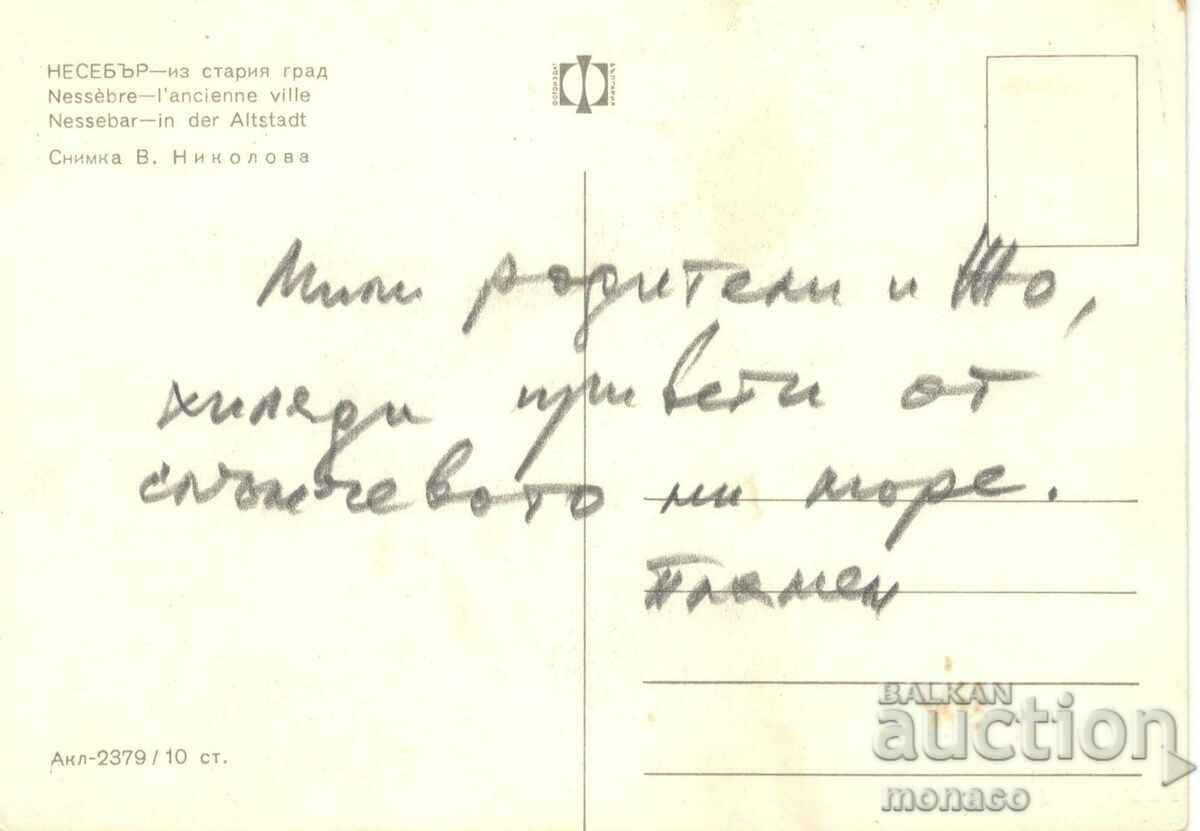 НЕСЕБЪР—из стария град
Nessèbre—l'ancienne ville
Nessebar—in der Altstadt
Снимка В. Николова
ФОТОИЗДАТ
БЪЛГАРИЯ
Мили родители и Жо,
хиляди привети от
слънчевото ни море.
Пламен
Акл-2379/10 ст.
BALKAN
auction
monaco